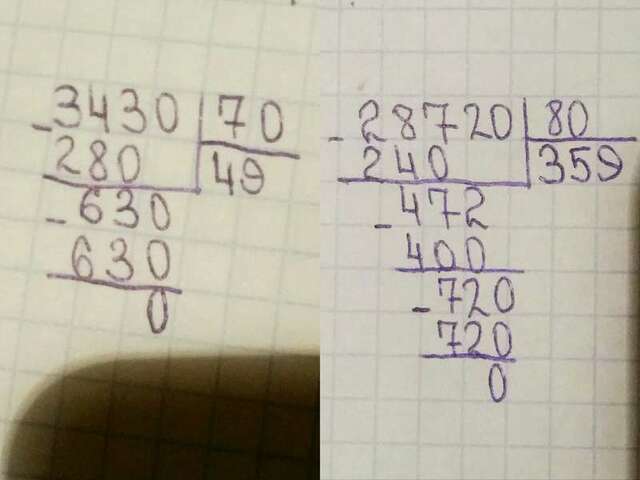 -3430 70
280 49
-630
630
0
-28720 80
240 359
-472
400
-720
720
0